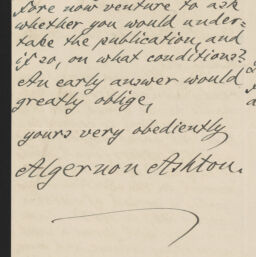 fore now venture to ask
whether you would under=
take the publication, and
if so, on what conditions?
An early answer would
greatly oblige,
yours very obediently
Algernon Ashton.